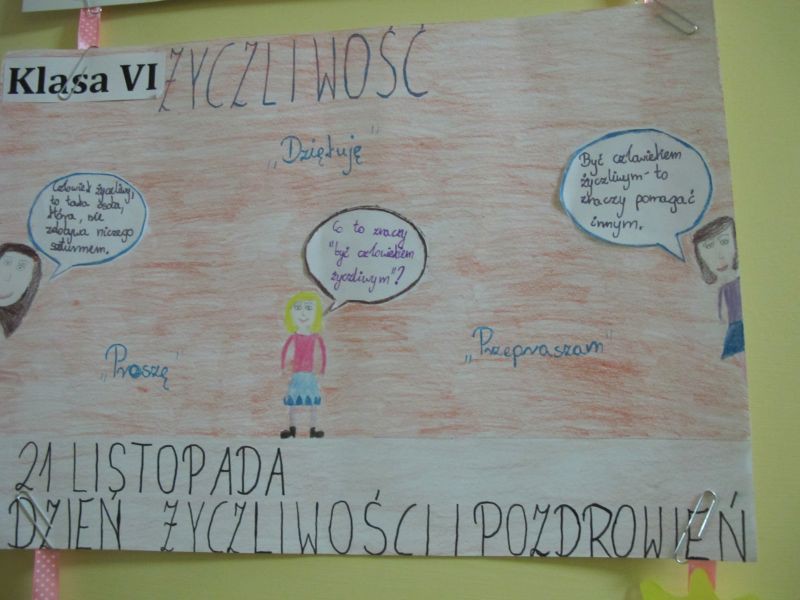 Klasa VI
ŻYCZLIWOŚĆ
„Dziękuję”
Człowiek życzliwy,
to taka
która, nie
zdobywa niczego
szturmem.
Co to znaczy
"być człowiekiem
życzliwym"?
Być człowiekiem
życzliwym - to
znaczy pomagać
innym.
„Proszę”
„Przepraszam”
21 LISTOPADA
DZIEŃ ŻYCZLIWOŚCI I POZDROWIEŃ